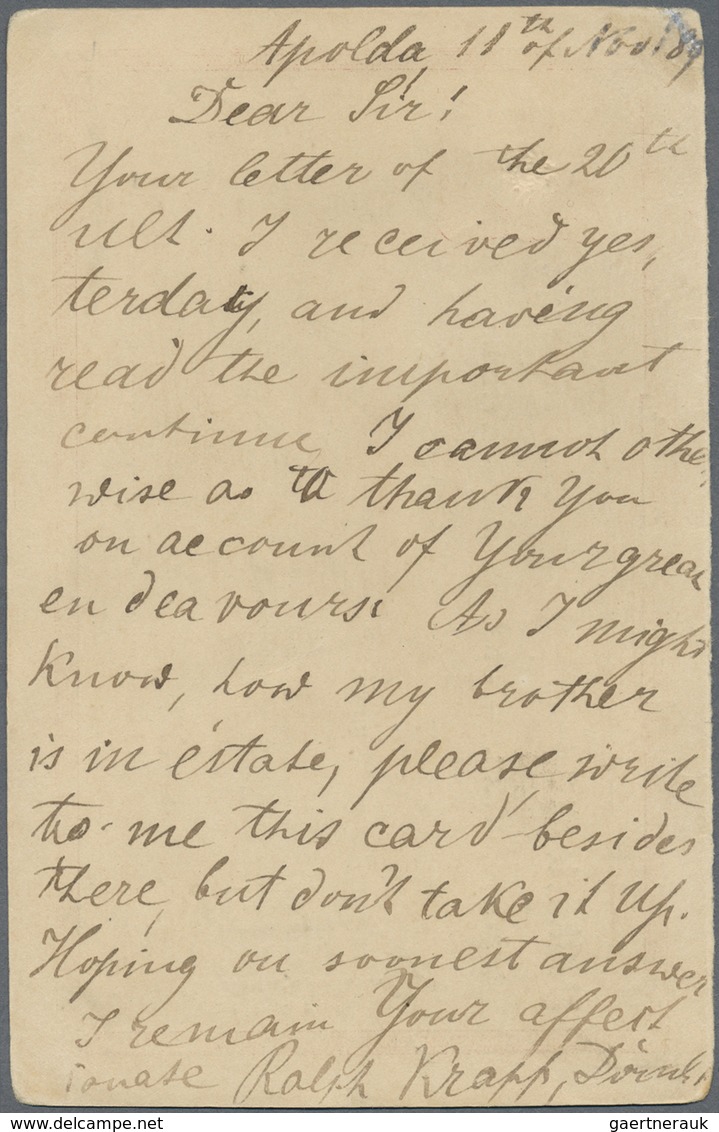 Apolda, 11th of Nov. 189
Dear Sir!
Your letter of the 20th
ult. I received yes,
terday, and having
read the important
continue, I cannot othe,
wise as to thank You
on account of Your great
endeavours. As I might
know, how my brother
is in estate, please write
to me this card besides
there, but don't take it up.
Hoping on soonest answer
I remain Your affect
ionate Ralph Krapf,
www.delcampe.net
gaertnerauk